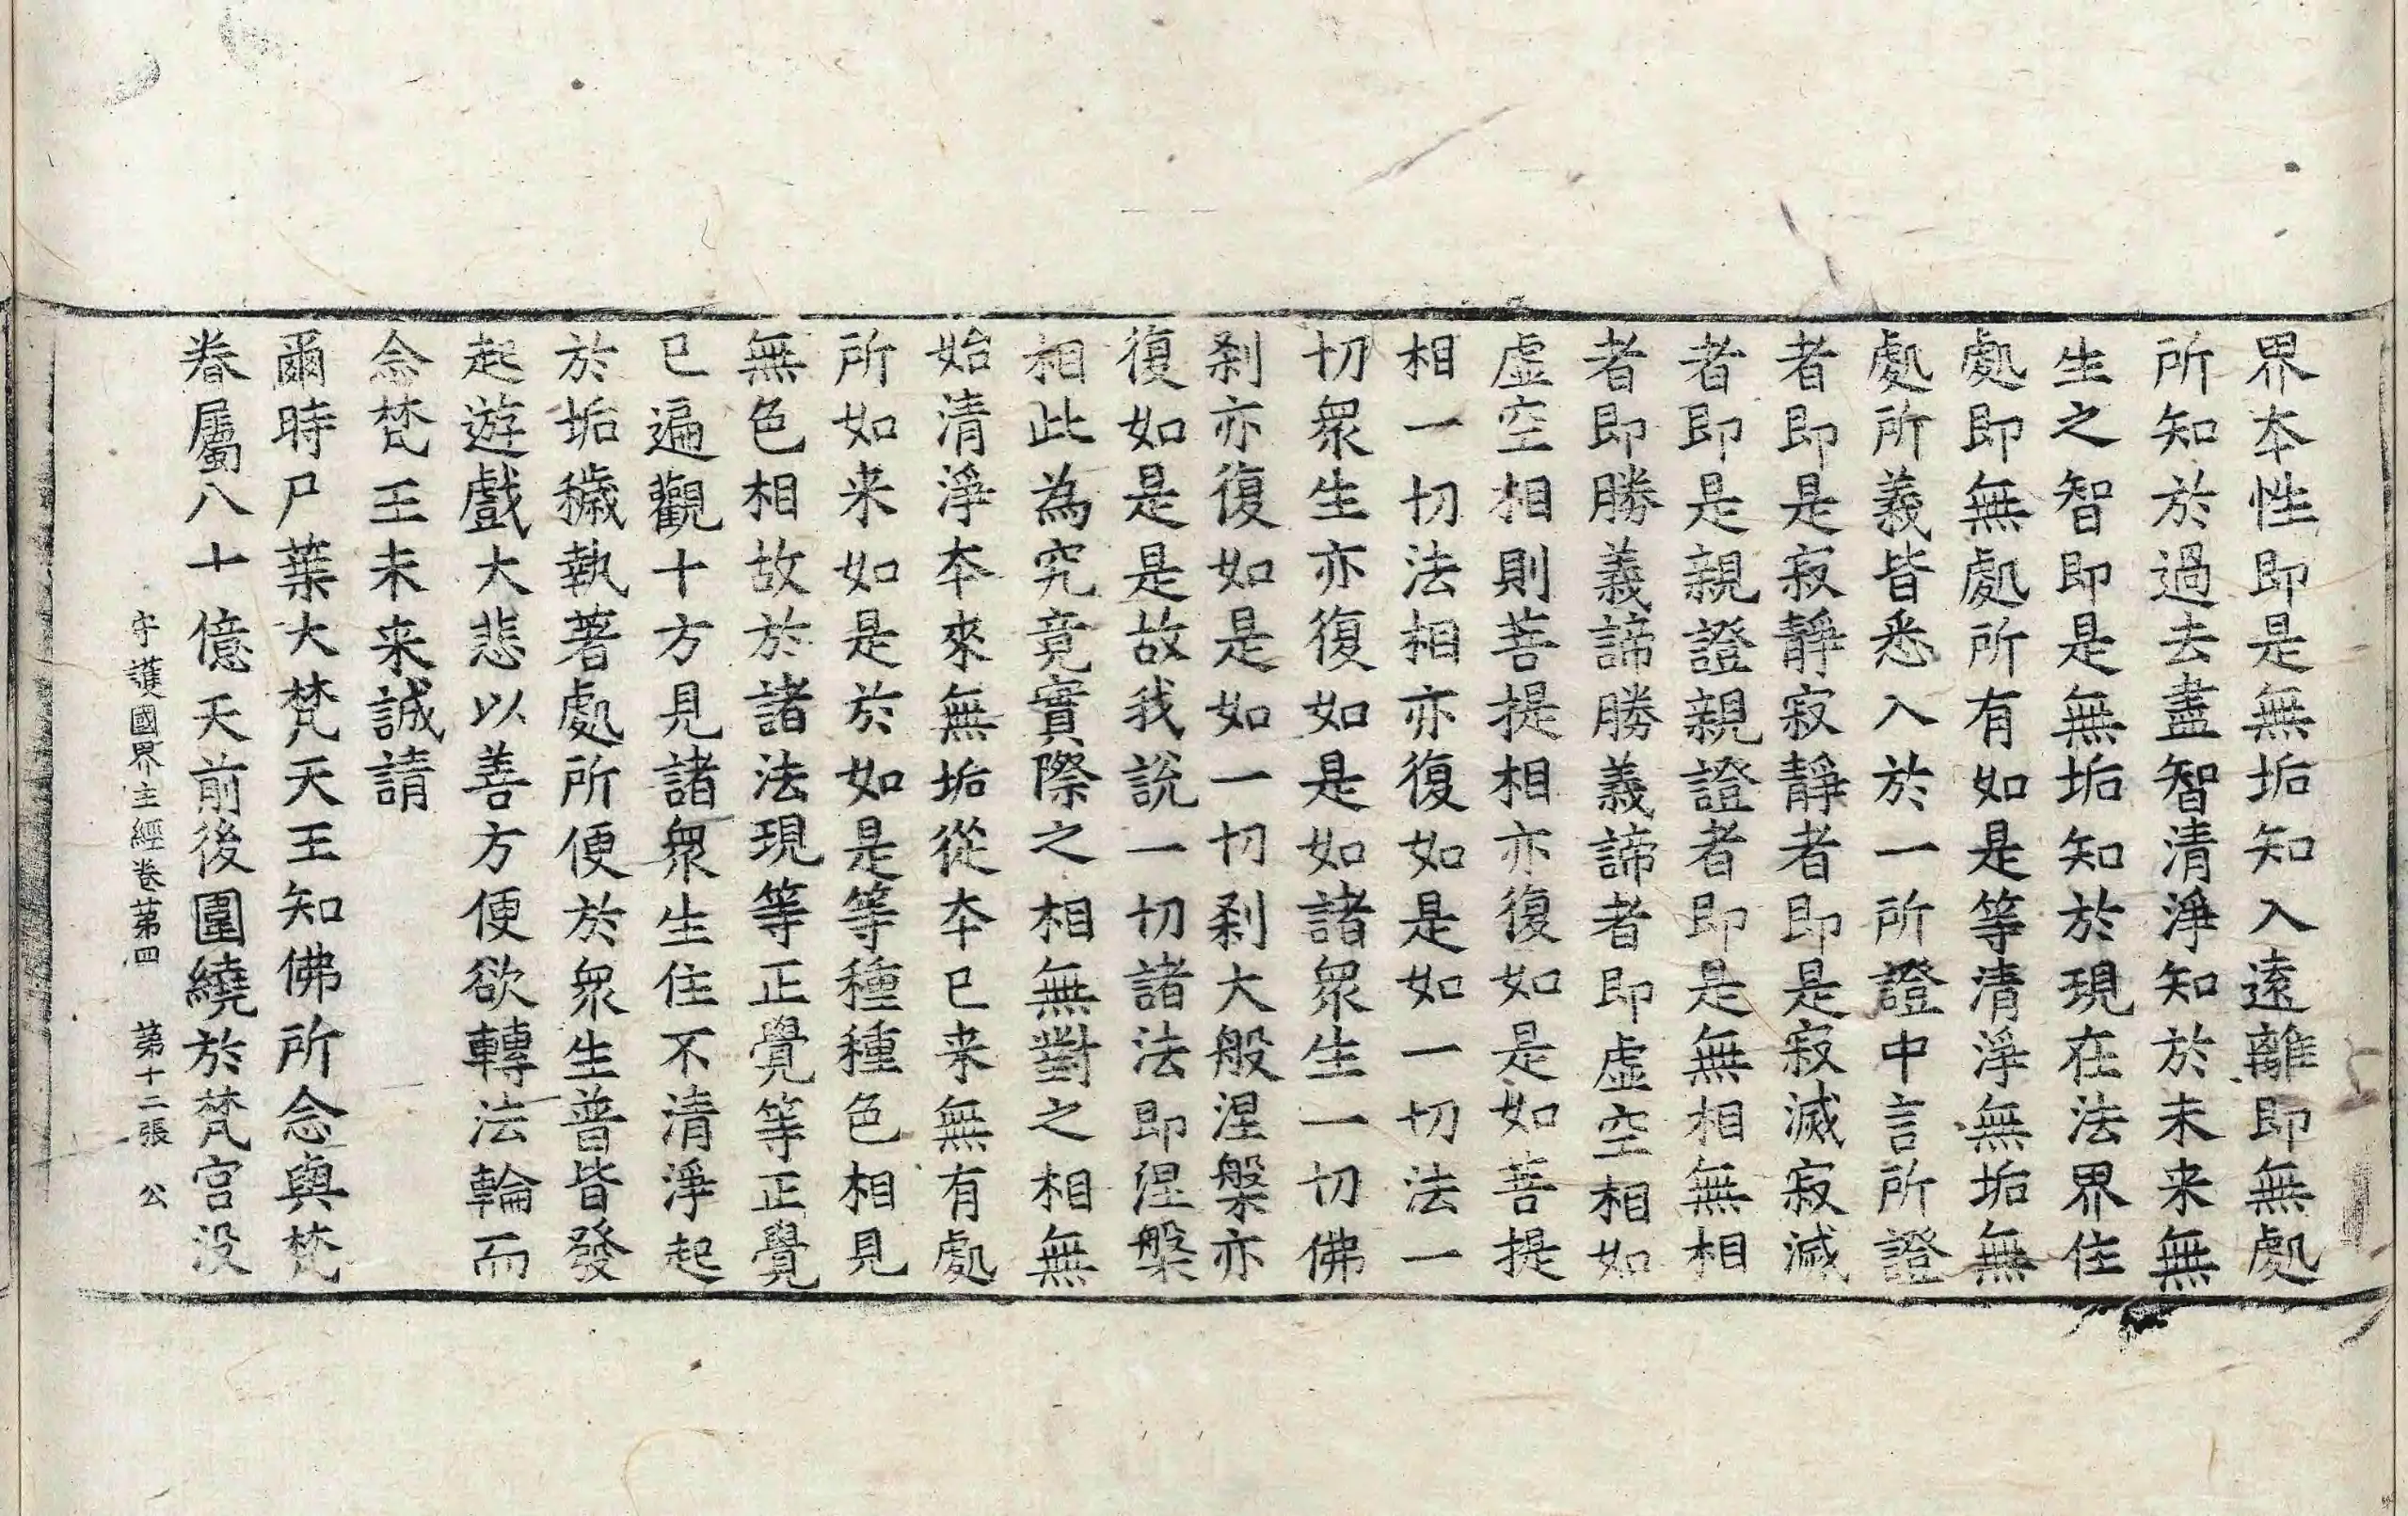 界本性即是無垢知入遠離即無處
所知於過去盡智清淨知於未来無
生之智即是無垢知於現在法界住
處即無處所有如是等清淨無垢無
處所義皆悉入於一所證中言所證
者即是寂靜寂靜者即是寂滅寂滅
者即是親證親證者即是無相無相
者即勝義諦勝義諦者即虛空相如
虛空相則菩提相亦復如是如菩提
相一切法相亦復如是如一切法一
切衆生亦復如是如諸衆生一切佛
剎亦復如是如一切剎大般涅槃亦
復如是是故我說一切諸法即涅槃
相此為究竟實際之相無對之相無
始清淨本來無垢從本已来無有處
所如来如是於如是等種種色相見
無色相故於諸法現等正覺等正覺
已遍觀十方見諸衆生住不清淨起
於垢穢執著處所便於衆生普皆發
起遊戲大悲以善方便欲轉法輪而
念梵王未来誠請
爾時尸葉大梵天王知佛所念與梵
眷屬八十億天前後圍繞於梵宮没
守護國界主經卷第四　第十二張　公